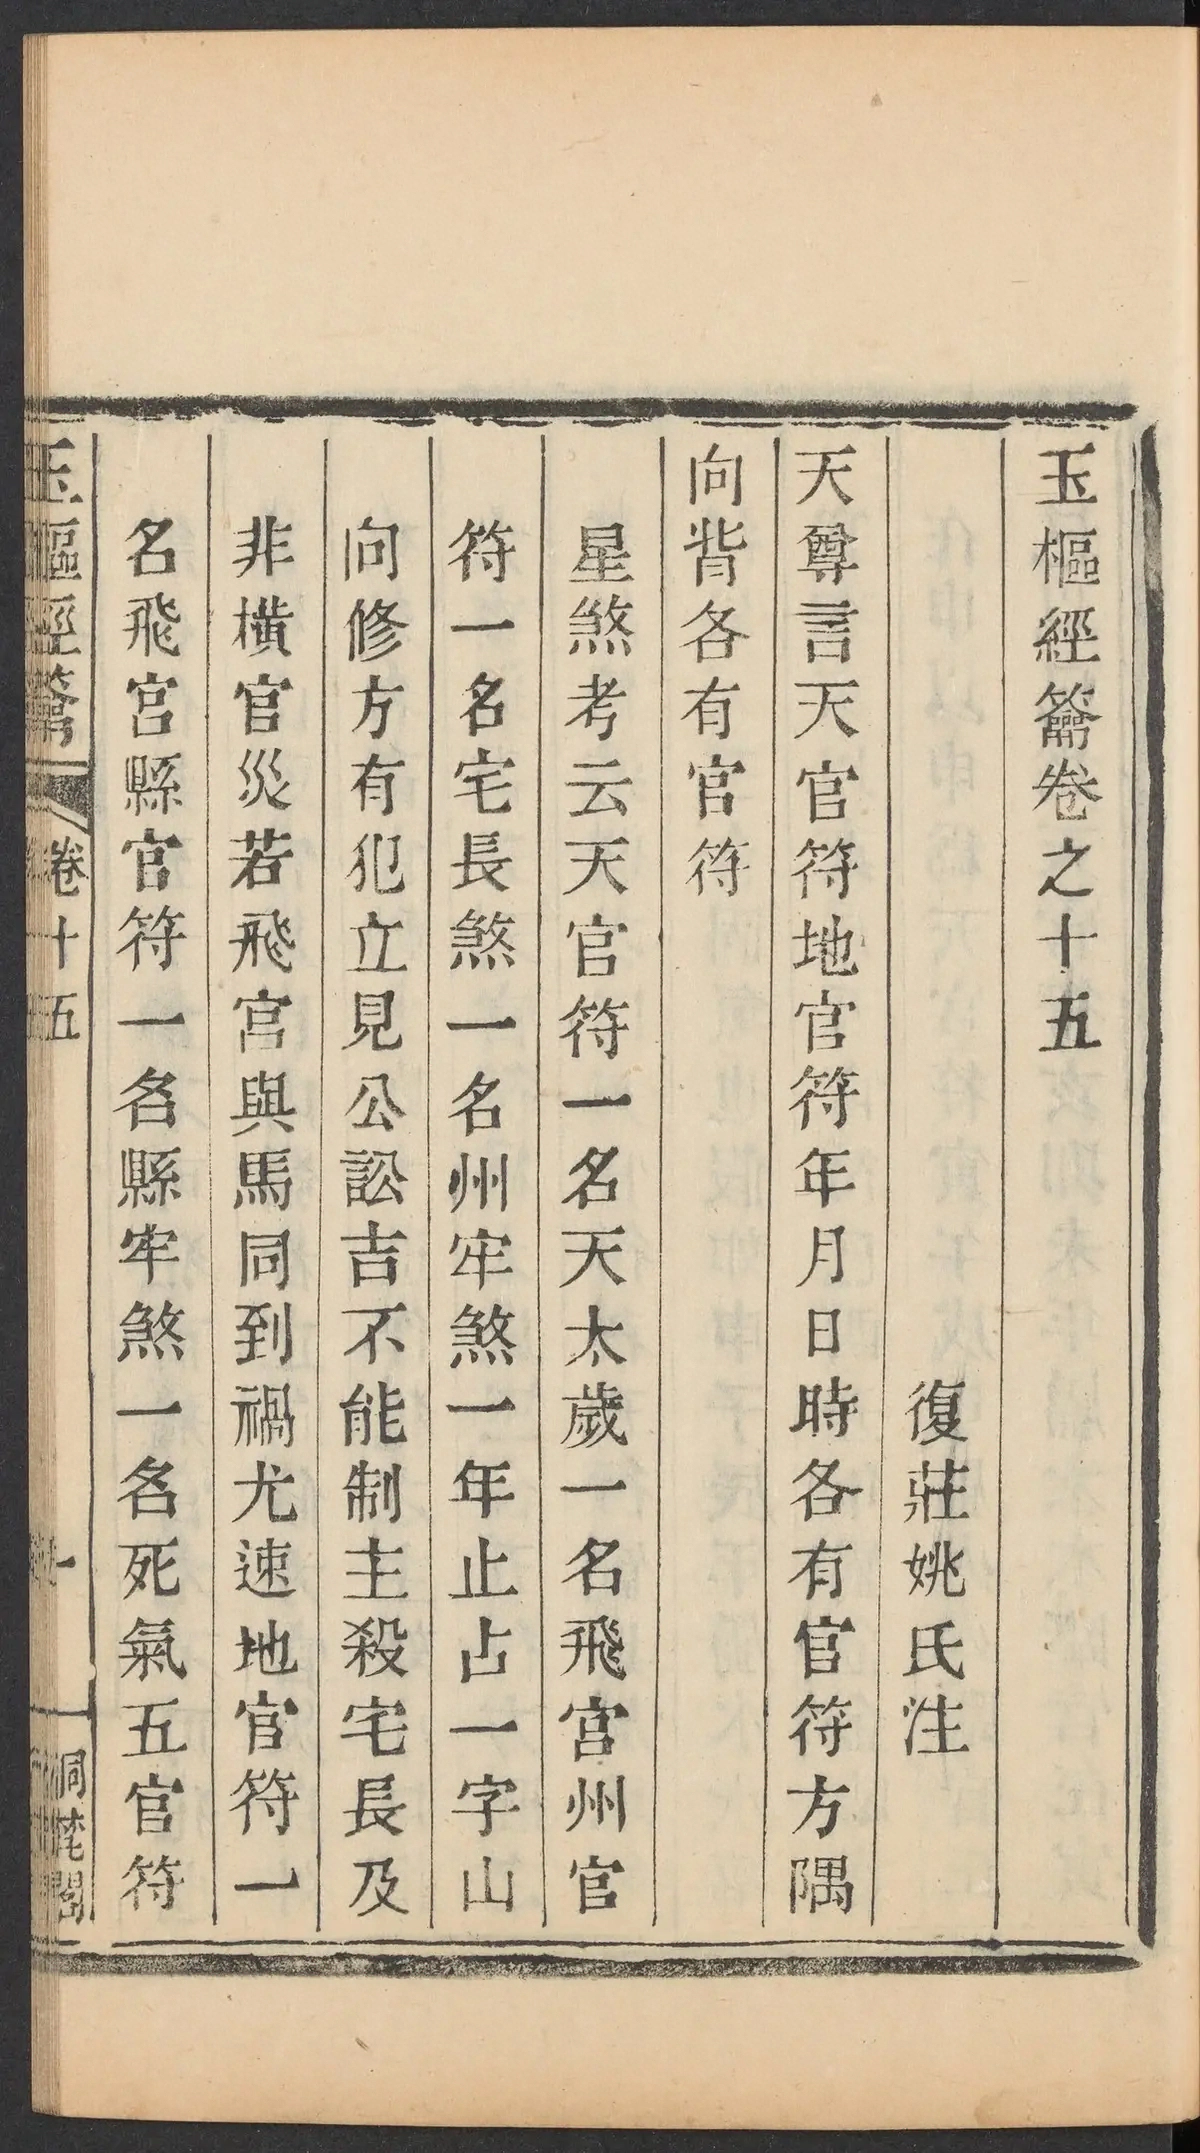 玉樞經籥卷之十五
復莊姚氏注
天尊言天官符地官符年月日時各有官符方隅
向背各有官符
星煞考云天官符一名天太歲一名飛宮州官
符一名宅長煞一名州牢煞一年止占一字山
向修方有犯立見公訟吉不能制主殺宅長及
非橫官災若飛宮與馬同到禍尤速地官符一
名飛宮縣官符一名縣牢煞一名死氣五官符
玉樞經籥
卷十五
一